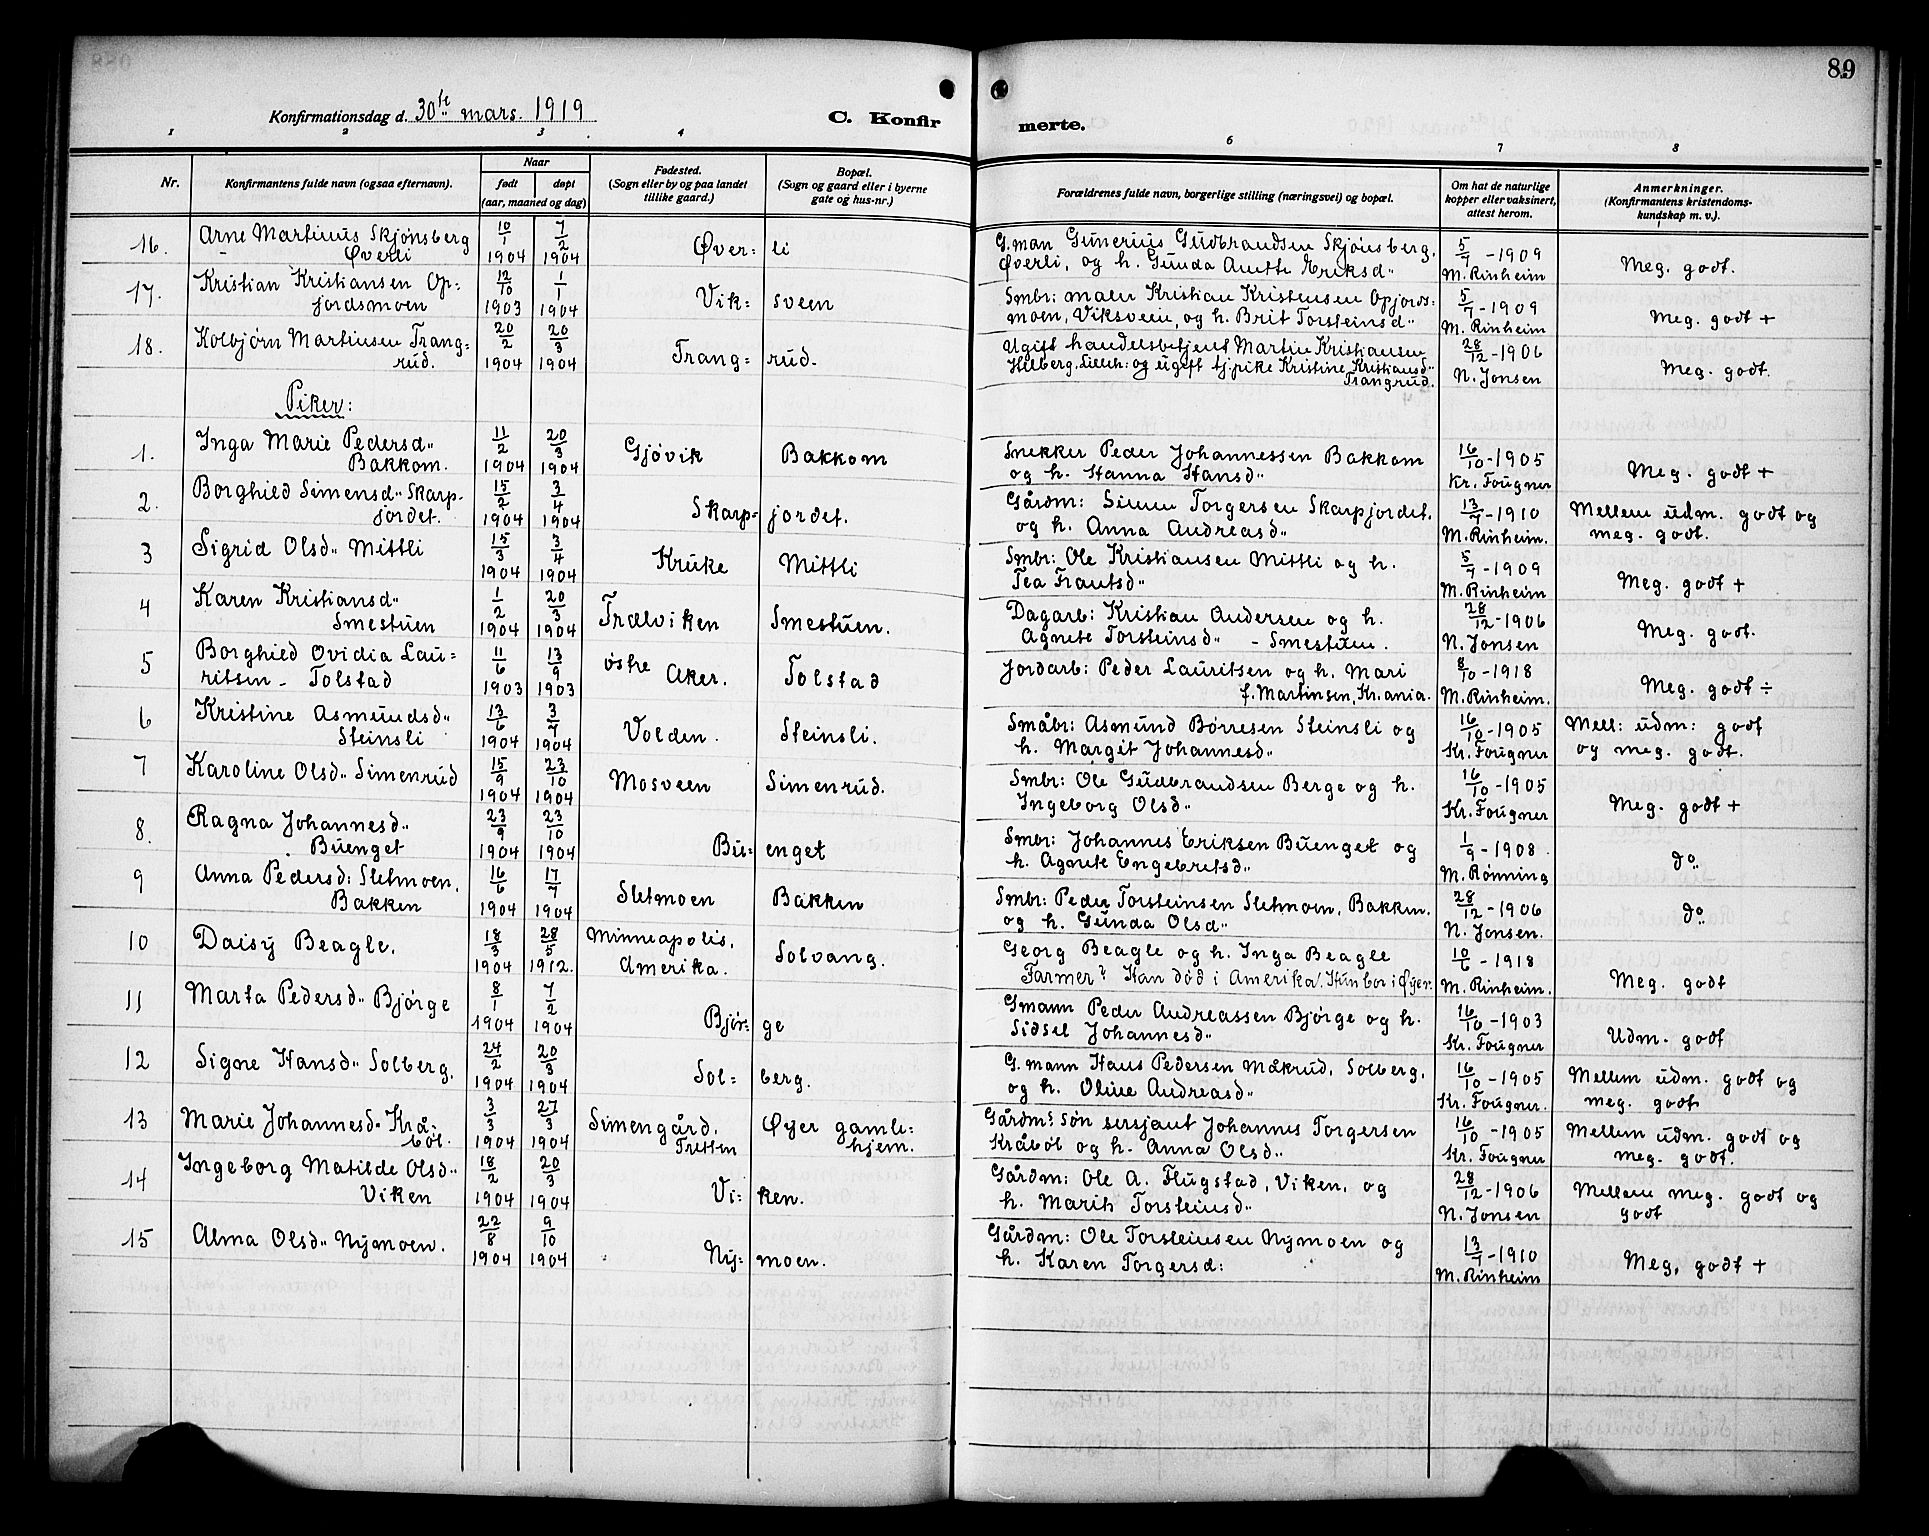 89
Konfirmationsdag d. 30te mars. 1919
C. Konfirmerte.
1 2 3 4 5 6 7 8
Nr.
Konfirmantens fulde navn (ogsaa efternavn).
Naar
født døpt
(aar, maaned og dag)
Fødested.
(Sogn eller by og paa landet
tillike gaard.)
Bopæl.
(Sogn og gaard eller i byerne
gate og hus-nr.)
Forældrenes fulde navn, borgerlige stilling (næringsvei) og bopæl.
Om hat de naturlige
kopper eller vaksinert,
attest herom.
Anmerkninger.
(Konfirmantens kristendoms-
kundskap m. v.).
16. Arne Martinus Skjønsberg 10/1 7/2 Øver= li G.man Gunerius Gudbrandsen Skjønsberg, 5/7 -1909 Meg. godt.
Øverli 1904 1904 Øverli, og h. Gunda Anette Eriksd" M. Rinheim
17. Kristian Kristiansen Op= 12/10 1/1 Vik= sveen Smbr: maler Kristian Kristensen Opjords= 5/7 -1909 Meg. godt +
jordsmoen 1903 1904 moen, Viksveen, og h. Brit Torsteinsd" M. Rinheim
18. Kolbjørn Martinsen Trang= 20/2 20/3 Trang= rud. Ugift handelsbetjent Martin Kristiansen 28/12 -1906 Meg. godt.
rud. 1904 1904 Hilberg, Lilleh: og ugift tj.pike Kristine Kristiansd" N. Jonsen
Trangrud.
Piker:
1. Inga Marie Pedersd" 11/2 20/3 Gjøvik Bakkom Snekker Peder Johannessen Bakkom 16/10 -1905 Meg. godt +
Bakkom. 1904 1904 og h. Hanna Hansd" Kr. Fougner
2. Borghild Simensd" Skarp- 15/2 3/4 Skarp= jordet. Gårdm: Simen Torgersen Skarpjordet. 13/7 -1910 Mellem udm. godt og
jordet. 1904 1904 og h. Anna Andreasd" M. Rinheim. meg. godt.
3 Sigrid Olsd" Mittli 15/3 3/4 Kruke Mittli Smbr: Ole Kristiansen Mittli og h. 5/7 -1909 Meg. godt +
1904 1904 Tea Frantsd" M. Rinheim
4 Karen Kristiansd" 1/2 20/3 Trælviken Smestuen. Dagarb: Kristian Andersen og h. 28/12 -1906 Meg. godt.
Smestuen 1904 1904 Agnete Torsteinsd" - Smestuen. N. Jonsen
5 Borghild Ovidia Lau= 11/6 13/9 østre Aker. Tolstad Jordarb: Peder Lauritsen og h. Mari 8/10 -1918 Meg. godt ÷
ritsen - Tolstad 1903 1903 f. Martinsen, Kr.ania. M. Rinheim.
6 Kristine Asmundsd" 13/6 3/7 Volden. Steinsli. Småbr: Asmund Børresen Steinsli og 16/10 -1905 Mell: udm: godt
Steinsli 1904 1904 h. Margit Johannesd" Kr. Fougner og meg. godt.
7 Karoline Olsd" Simenrud 15/9 23/10 Mosveen Simenrud. Smbr: Ole Gudbrandsen Berge og h. 16/10 -1905 Meg. godt +
1904 1904 Ingeborg Olsd" Kr. Fougner
8. Ragna Johannesd" 23/9 23/10 Bu= enget Smbr: Johannes Eriksen Buenget og 1/9 -1908 do
Buenget 1904 1904 h. Agnete Engebretsd" M. Rønning
9 Anna Pedersd: Sletmoen, 16/6 17/7 Sletmoen Bakken Smbr: Peder Torsteinsen Sletmoen, Bakken. 28/12 -1906 do
Bakken 1904 1904 og h. Gunda Olsd" N. Jonsen.
10 Daisy Beagle. 18/3 28/5 Minneapolis, Solvang. Georg Beagle og h. Inga Beagle 10/6 -1918 Meg. godt
1904 1912. Amerika. Farmer? Han død i Amerika. Hun bor i Øyer. M. Rinheim.
11 Marta Pedersd" Bjørge 8/1 7/2 Bjør- ge Gmann Peder Andreassen Bjørge og h. 16/10 -1903 Udm. godt
1904 1904 Sidsel Johannesd" Kr. Fougner
12 Signe Hansd" Solberg. 24/2 20/3 Sol= berg. G. mann Hans Pedersen Måkrud, Solberg, 16/10 -1905 Mellem udm. godt og
1904 1904 og h. Oline Andreasd" Kr. Fougner. meg. godt
13 Marie Johannesd" Krå= 3/3 27/3 Simengård, Øyer gamle= Gårdms søn sersjant Johannes Torgersen 16/10 -1905 Mellem udm. godt og
bøl. 1904 1904 Tretten hjem. Kråbøl og h. Anna Olsd" Kr. Fougner meg. godt.
14 Ingeborg Matilde Olsd" 18/2 20/3 Vi= ken. Gårdm: Ole A. Flugstad, Viken, og 28/12 -1906 Mellem meg. godt og
Viken 1904 1904 h. Marih Torsteinsd" N. Jonsen godt
15 Alma Olsd" Nymoen. 22/8 9/10 Ny= moen. Gårdm: Ole Torsteinsen Nymoen og 13/7 -1910 Meg, godt +
1904 1904 h. Karen Torgersd: M. Rinheim